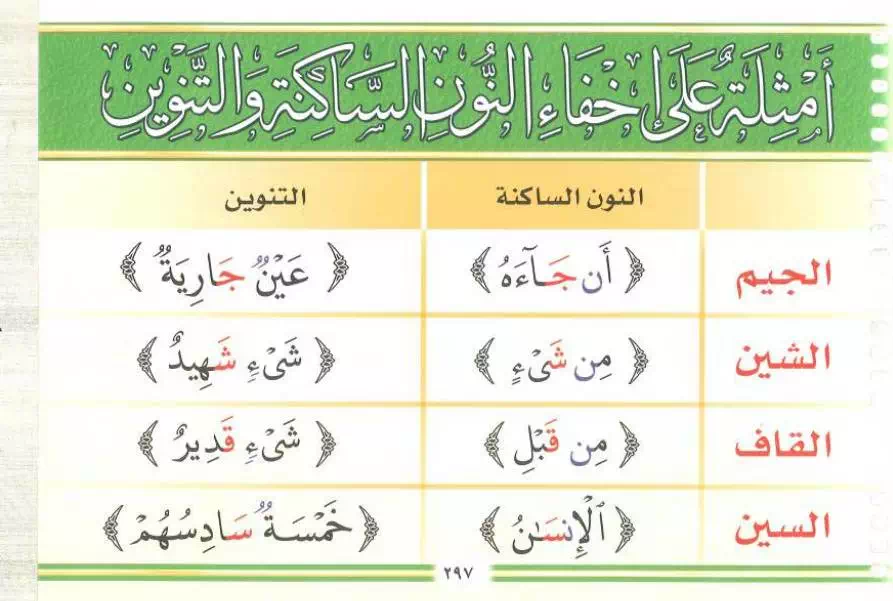 أَمْثِلَةٌ عَلَى إِخْفَاءِ النُّونِ السَّاكِنَةِ وَالتَّنْوِينِ
النون الساكنة التنوين
الجيم ﴿ أَن جَآءَهُ ﴾ ﴿ عَيْنٌ جَارِيَةٌ ﴾
الشين ﴿ مِن شَىْءٍ ﴾ ﴿ شَىْءٍ شَهِيدٌ ﴾
القاف ﴿ مِن قَبْلِ ﴾ ﴿ شَىْءٍ قَدِيرٌ ﴾
السين ﴿ ٱلْإِنسَٰنُ ﴾ ﴿ خَمْسَةٌ سَادِسُهُمْ ﴾
٢٩٧